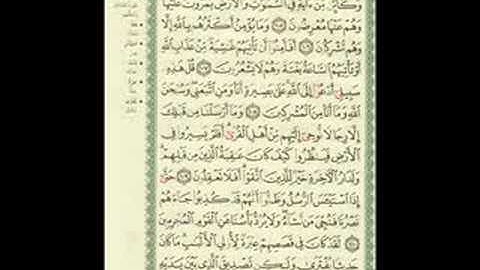 وكأين من ءاية في السموت والأرض يمرون عليها
وهم عنها معرضون وما يؤمن أكثرهم بالله إلا
وهم مشركون أفأمنوا أن تأتيهم غشية من عذاب الله
أو تأتيهم الساعة بغتة وهم لا يشعرون قل هذه
سبيلي أدعوا إلى الله على بصيرة أنا ومن اتبعني وسبحن
الله وما أنا من المشركين وما أرسلنا من قبلك
إلا رجالا نوحي إليهم من أهل القرى أفلم يسيروا في
الأرض فينظروا كيف كان عقبة الذين من قبلهم
ولدار الآخرة خير للذين اتقوا أفلا تعقلون حتى
إذا استيئس الرسل وظنوا أنهم قد كذبوا جاءهم
نصرنا فنجي من نشاء ولا يرد بأسنا عن القوم المجرمين
لقد كان في قصصهم عبرة لأولي الألبب ما كان
حديثا يفترى ولكن تصديق الذي بين يديه